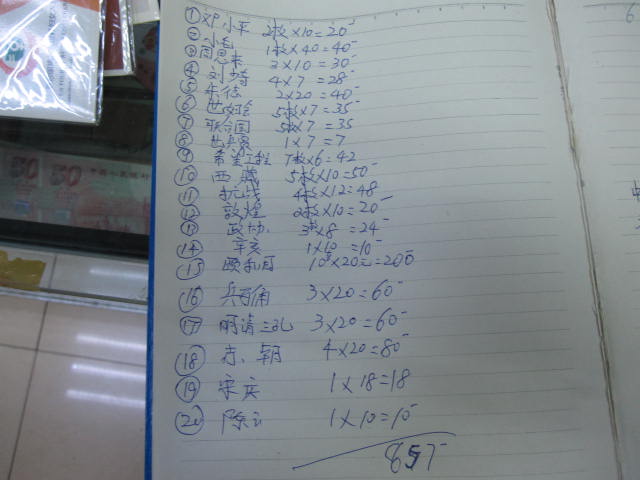 ① 邓小平 2枚×10=20-
② 1枚×40=40-
③ 周恩来 3×10=30-
④ 刘 4×7=28-
⑤ 朱德 2×20=40-
⑥ 世妇会 5枚×7=35-
⑦ 联合国 5枚×7=35
⑧ 1×7=7
⑨ 希望工程 7枚×6=42
⑩ 西藏 5枚×10=50-
⑪ 抗战 4枚×12=48
⑫ 敦煌 2枚×10=20-
⑬ 政协 3枚×8=24-
⑭ 辛亥 1×10=10-
⑮ 10×20=200
⑯ 兵马俑 3×20=60-
⑰ 丽清三孔 3×20=60-
⑱ 赤、朝 4×20=80-
⑲ 宋庆 1×18=18
⑳ 陈云 1×10=10-
857-
50
50